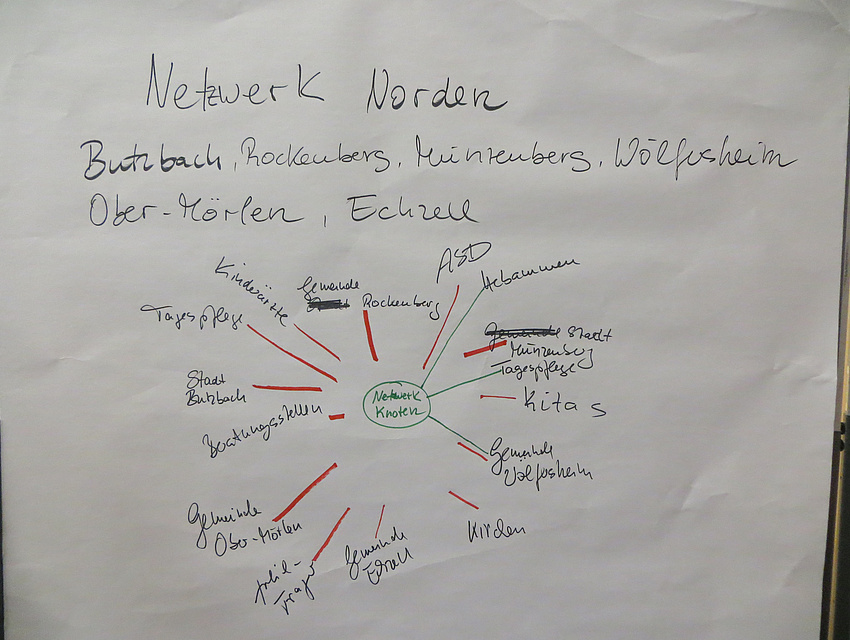 Netzwerk Norden
Butzbach, Rockenberg, Münzenberg, Wölfersheim
Ober-Mörlen, Echzell
ASD
Hebammen
Kinderärzte
Gemeinde
Rockenberg
Tagespflege
Gemeinde Stadt
Münzenberg
Tagespflege
Stadt
Butzbach
Netzwerk
Knoten
Kitas
Beratungsstellen
Gemeinde
Wölfersheim
Gemeinde
Ober-Mörlen
Kirchen
Gemeinde
Echzell
Träger